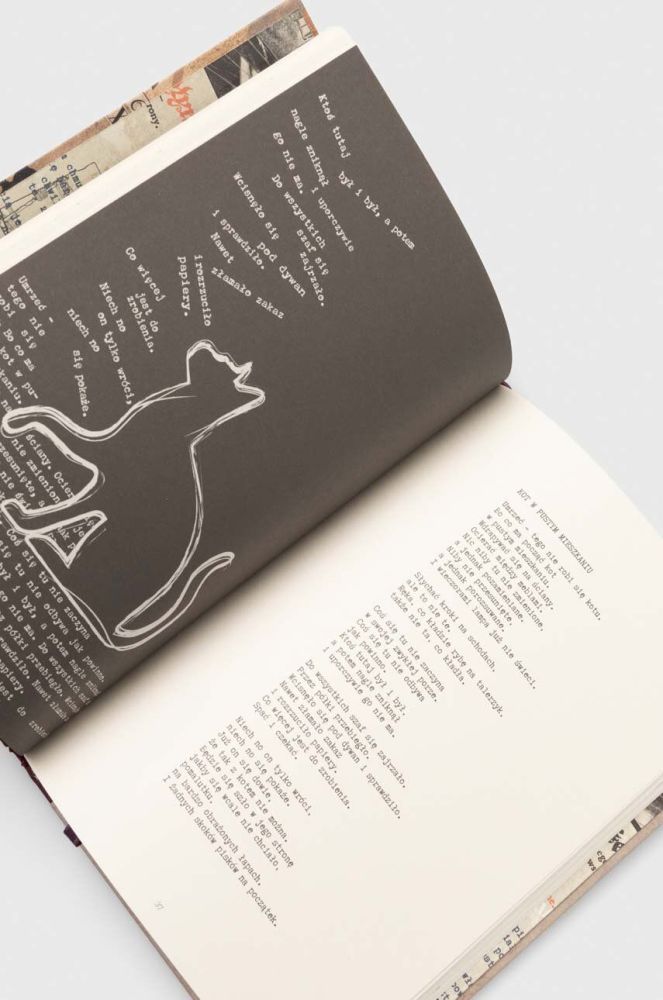 Ktoś tutaj
był i był, a potem
nagle zniknął
i uporczywie
go nie ma.
Do wszystkich
szaf się
zajrzało.
Wcisnęło się
pod dywan
i sprawdziło.
Nawet
złamało zakaz
i rozrzuciło
papiery.
Co więcej
jest do
zrobienia.
Niech no
on tylko wróci,
niech no
się pokaże.
Umrzeć –
tego nie
robi się
Bo co ma
kot w pu-
ściany. Ocier
nie zmienion
Coś się tu nie zaczyna
tu nie odbywa jak powinno.
był i był, a potem nagle
go nie ma. Do wszystkich
półki przebiegło.
Nawet
papiery.
jest do
KOT W PUSTYM MIESZKANIU
Umrzeć – tego nie robi się kotu.
Bo co ma począć kot
w pustym mieszkaniu.
Wdrapywać się na ściany.
Ocierać między meblami.
Nic niby tu nie zmienione,
a jednak pozamieniane.
Niby nie przesunięte,
a jednak porozsuwane.
I wieczorami lampa już nie świeci.
Słychać kroki na schodach,
ale to nie te.
Ręka, co kładzie rybę na talerzyk,
także nie ta, co kładła.
Coś się tu nie zaczyna
w swojej zwykłej porze.
Coś się tu nie odbywa
jak powinno.
Ktoś tutaj był i był,
a potem nagle zniknął
i uporczywie go nie ma.
Do wszystkich szaf się zajrzało.
Przez półki przebiegło.
Wcisnęło się pod dywan i sprawdziło.
Nawet złamało zakaz
i rozrzuciło papiery.
Co więcej jest do zrobienia.
Spać i czekać.
Niech no on tylko wróci,
niech no się pokaże.
Już on się dowie,
że tak z kotem nie można.
Będzie się szło w jego stronę
jakby się wcale nie chciało,
pomalutku,
na bardzo obrażonych łapach.
I żadnych skoków pisków na początek.
37
rony.